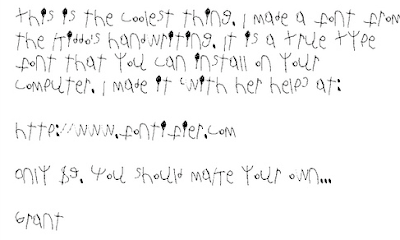 This is the coolest thing. I made a font from
the Kiddo's handwriting. It is a true type
font that you can install on your
computer. I made it (with her help) at:
http://www.fontifier.com
Only $9. You should make your own...
Grant